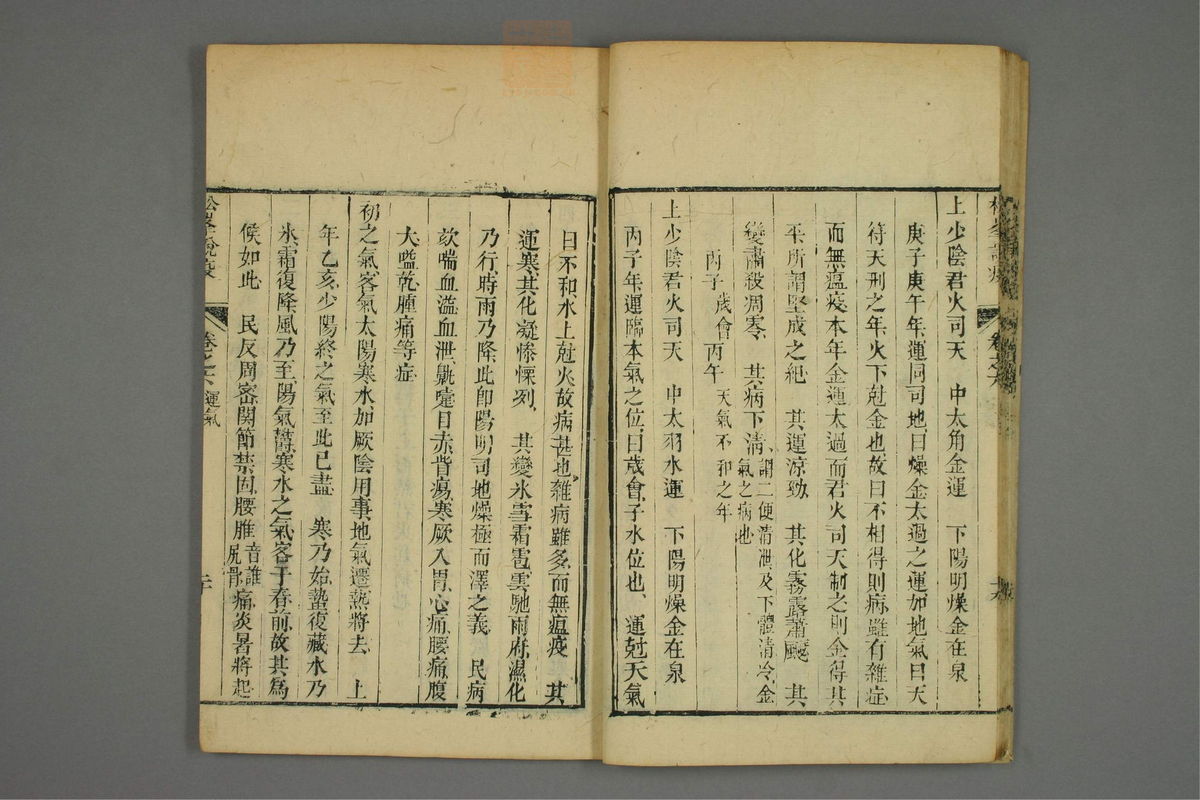 上少陰君火司天　中太角金運　下陽明燥金在泉
庚子庚午年運同司地曰燥金太過之運加地氣曰天
符天刑之年火下尅金也故曰不相得則病雖有雜症
而無瘟疫本年金運太過而君火司天制之則金得其
平所謂堅成之紀　其運涼勁　其化霧露蕭飋　其
變肅殺凋零　其病下淸謂二便清泄及下體清冷金氣之病也
丙子歲會丙午天氣不和之年
上少陰君火司天　中太羽水運　下陽明燥金在泉
丙子年運臨本氣之位曰歲會子水位也　運尅天氣
曰不和水上尅火故病甚也雜病雖多而無瘟疫　其
運寒其化凝慘慄冽　其變氷雪霜雹雲馳雨府濕化
乃行時雨乃降此卽陽明司地燥極而澤之義　民病
欬喘血溢血泄鼽嚏目赤眥瘍寒厥入胃心痛腰痛腹
大嗌乾腫痛等症
初之氣客氣太陽寒水加厥陰用事地氣遷熱將去　上
年乙亥少陽終之氣至此已盡　寒乃始蟄復藏水乃
氷霜復降風乃至陽氣鬱寒水之氣客于春前故其爲
候如此　民反周密関節禁固腰脽音誰尻骨痛炎暑將起
松峯說疫　卷之六　運氣　二十
卷之六